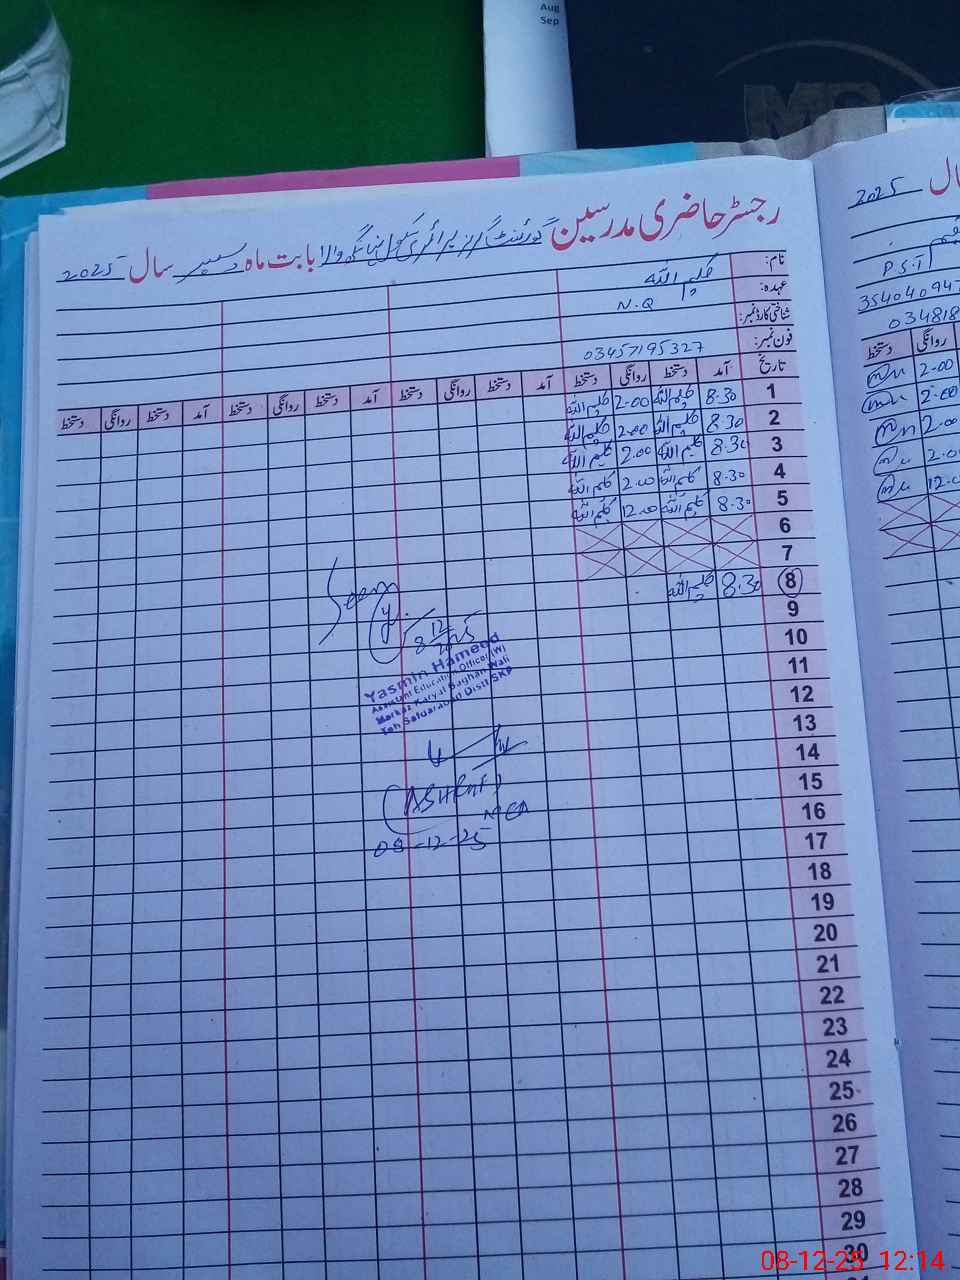 Aug
Sep
رجسٹر حاضری مدرسین گورنمنٹ گرلز پرائمری سکول بابت ماہ دسمبر سال 2025
نام: کلیم اللہ
عہدہ: N.Q
شناختی کارڈ نمبر:
فون نمبر: 03457195327
تاریخ آمد دستخط روانگی دستخط آمد دستخط روانگی دستخط آمد دستخط روانگی دستخط
1 8.30 کلیم اللہ 2.00 کلیم اللہ
2 8.30 کلیم اللہ 2.00 کلیم اللہ
3 8.30 کلیم اللہ 2.00 کلیم اللہ
4 8.30 کلیم اللہ 2.00 کلیم اللہ
5 8.30 کلیم اللہ 12.00 کلیم اللہ
6
7
8 8.30 کلیم اللہ
9
10
11
12
13
14
15
16
17
18
19
20
21
22
23
24
25
26
27
28
29
30
Seen
8 12/2025
Yasmin Hameed
Assistant Education Officer (W)
Markaz Karyal Baghan Wali
Teh Safdarabad Distt SKP
(ASHRAF)
MEA
08-12-25
سال 2025
P.S.T
3540409
03481
روانگی دستخط
2.00
2.00
2.00
2.00
12.00
08-12-25 12:14